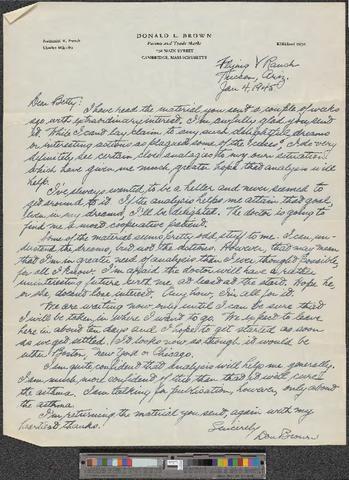 DONALD L. BROWN
Patents and Trade Marks
CAMBRIDGE, MASSACHUSETTS
Flying V Ranch
Tucson, Ariz.
Jan 4, 1945
Dear Betty:
I have read the material you sent a couple of weeks
ago, with extraordinary interest. I'm awfully glad you sent
it. While I can't lay claim to any such delightful dreams
or interesting actions as plagued some of the I do very
definitely see certain close analogies to my own situation
which have given me much greater hope that analysis will
help.
I've always wanted to be a heller and never seemed to
get around to it. If the analysis helps me attain that goal,
even in my dreams, I'll be delighted. The doctor is going to
find me a most cooperative patient.
Some of the material seems pretty odd stuff to me. I can
understand the dreams, but not the However, that may mean
that I'm in greater need of analysis than I ever thought possible,
for all I know. I'm afraid the doctor will have a rather
uninteresting future with me at least at the start. Hope he
or she doesn't lose interest. Anyhow, I'm all for it.
We are waiting now only until I can be sure that
I will be taken in where I want to go. We expect to leave
here in about ten days and I hope to get started as soon
as we get settled. It looks now as though it would be
either Boston, New York or Chicago.
I'm quite confident that analysis will help me generally.
I'm much more confident of this than that it will cure
the asthma. I am talking for publication, however, only about
the asthma.
I'm returning the material you sent, again with my
heartiest thanks.
Sincerely
Don Brown